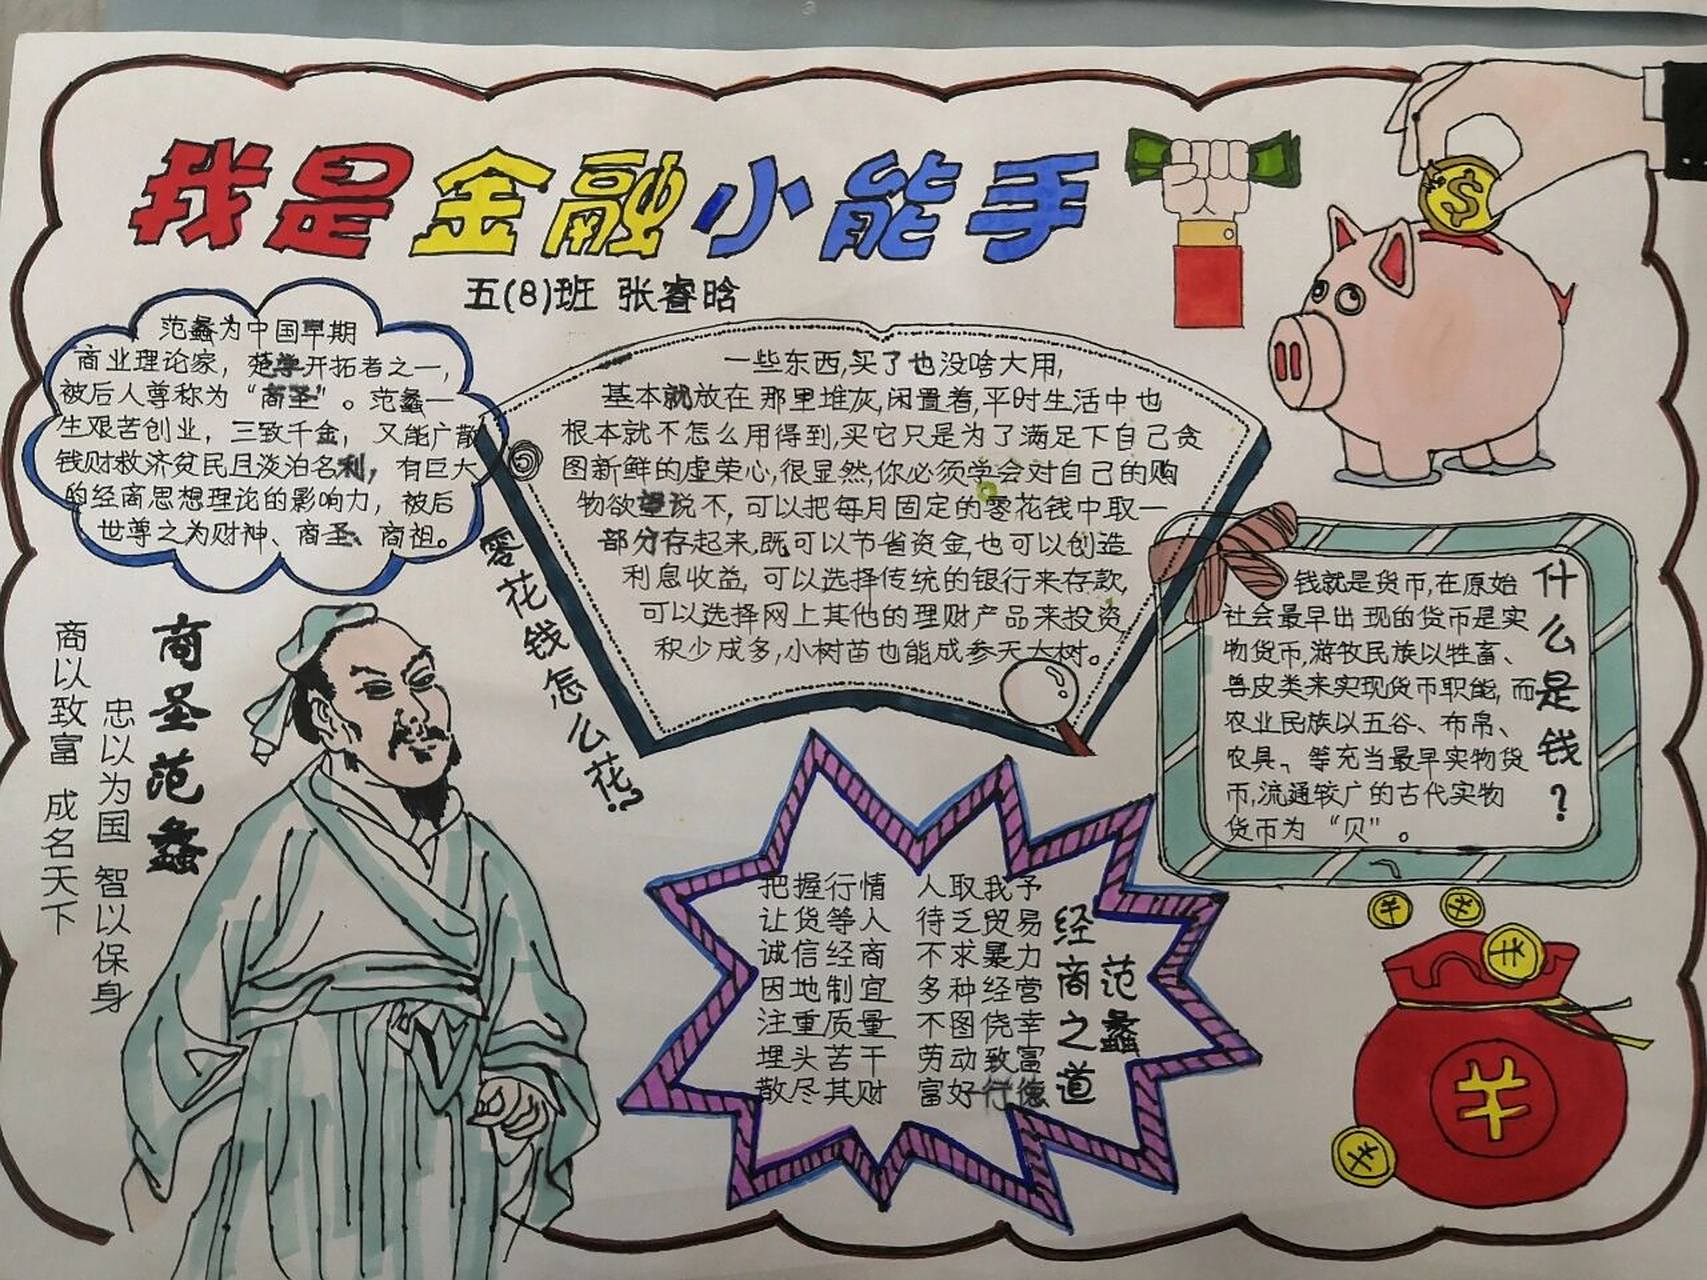 我是金融小能手
五(8)班 张睿晗
范蠡为中国早期
商业理论家，楚学开拓者之一，
被后人尊称为“商圣”。范蠡一
生艰苦创业，三致千金，又能广散
钱财救济贫民且淡泊名利，有巨大
的经商思想理论的影响力，被后
世尊之为财神、商圣、商祖。
商圣范蠡
忠以为国 智以保身
商以致富 成名天下
零花钱怎么花!?
一些东西,买了也没啥大用,
基本就放在那里堆灰,闲置着,平时生活中也
根本就不怎么用得到,买它只是为了满足下自己贪
图新鲜的虚荣心,很显然,你必须学会对自己的购
物欲望说不,可以把每月固定的零花钱中取一
部分存起来,既可以节省资金,也可以创造
利息收益,可以选择传统的银行来存款,
可以选择网上其他的理财产品来投资
积少成多,小树苗也能成参天大树。
什么是钱?
钱就是货币,在原始
社会最早出现的货币是实
物货币,游牧民族以牲畜、
兽皮类来实现货币职能,而
农业民族以五谷、布帛、
农具、等充当最早实物货
币,流通较广的古代实物
货币为“贝”。
范蠡
经商之道
把握行情 人取我予
让货等人 待乏贸易
诚信经商 不求暴力
因地制宜 多种经营
注重质量 不图侥幸
埋头苦干 劳动致富
散尽其财 富好行德